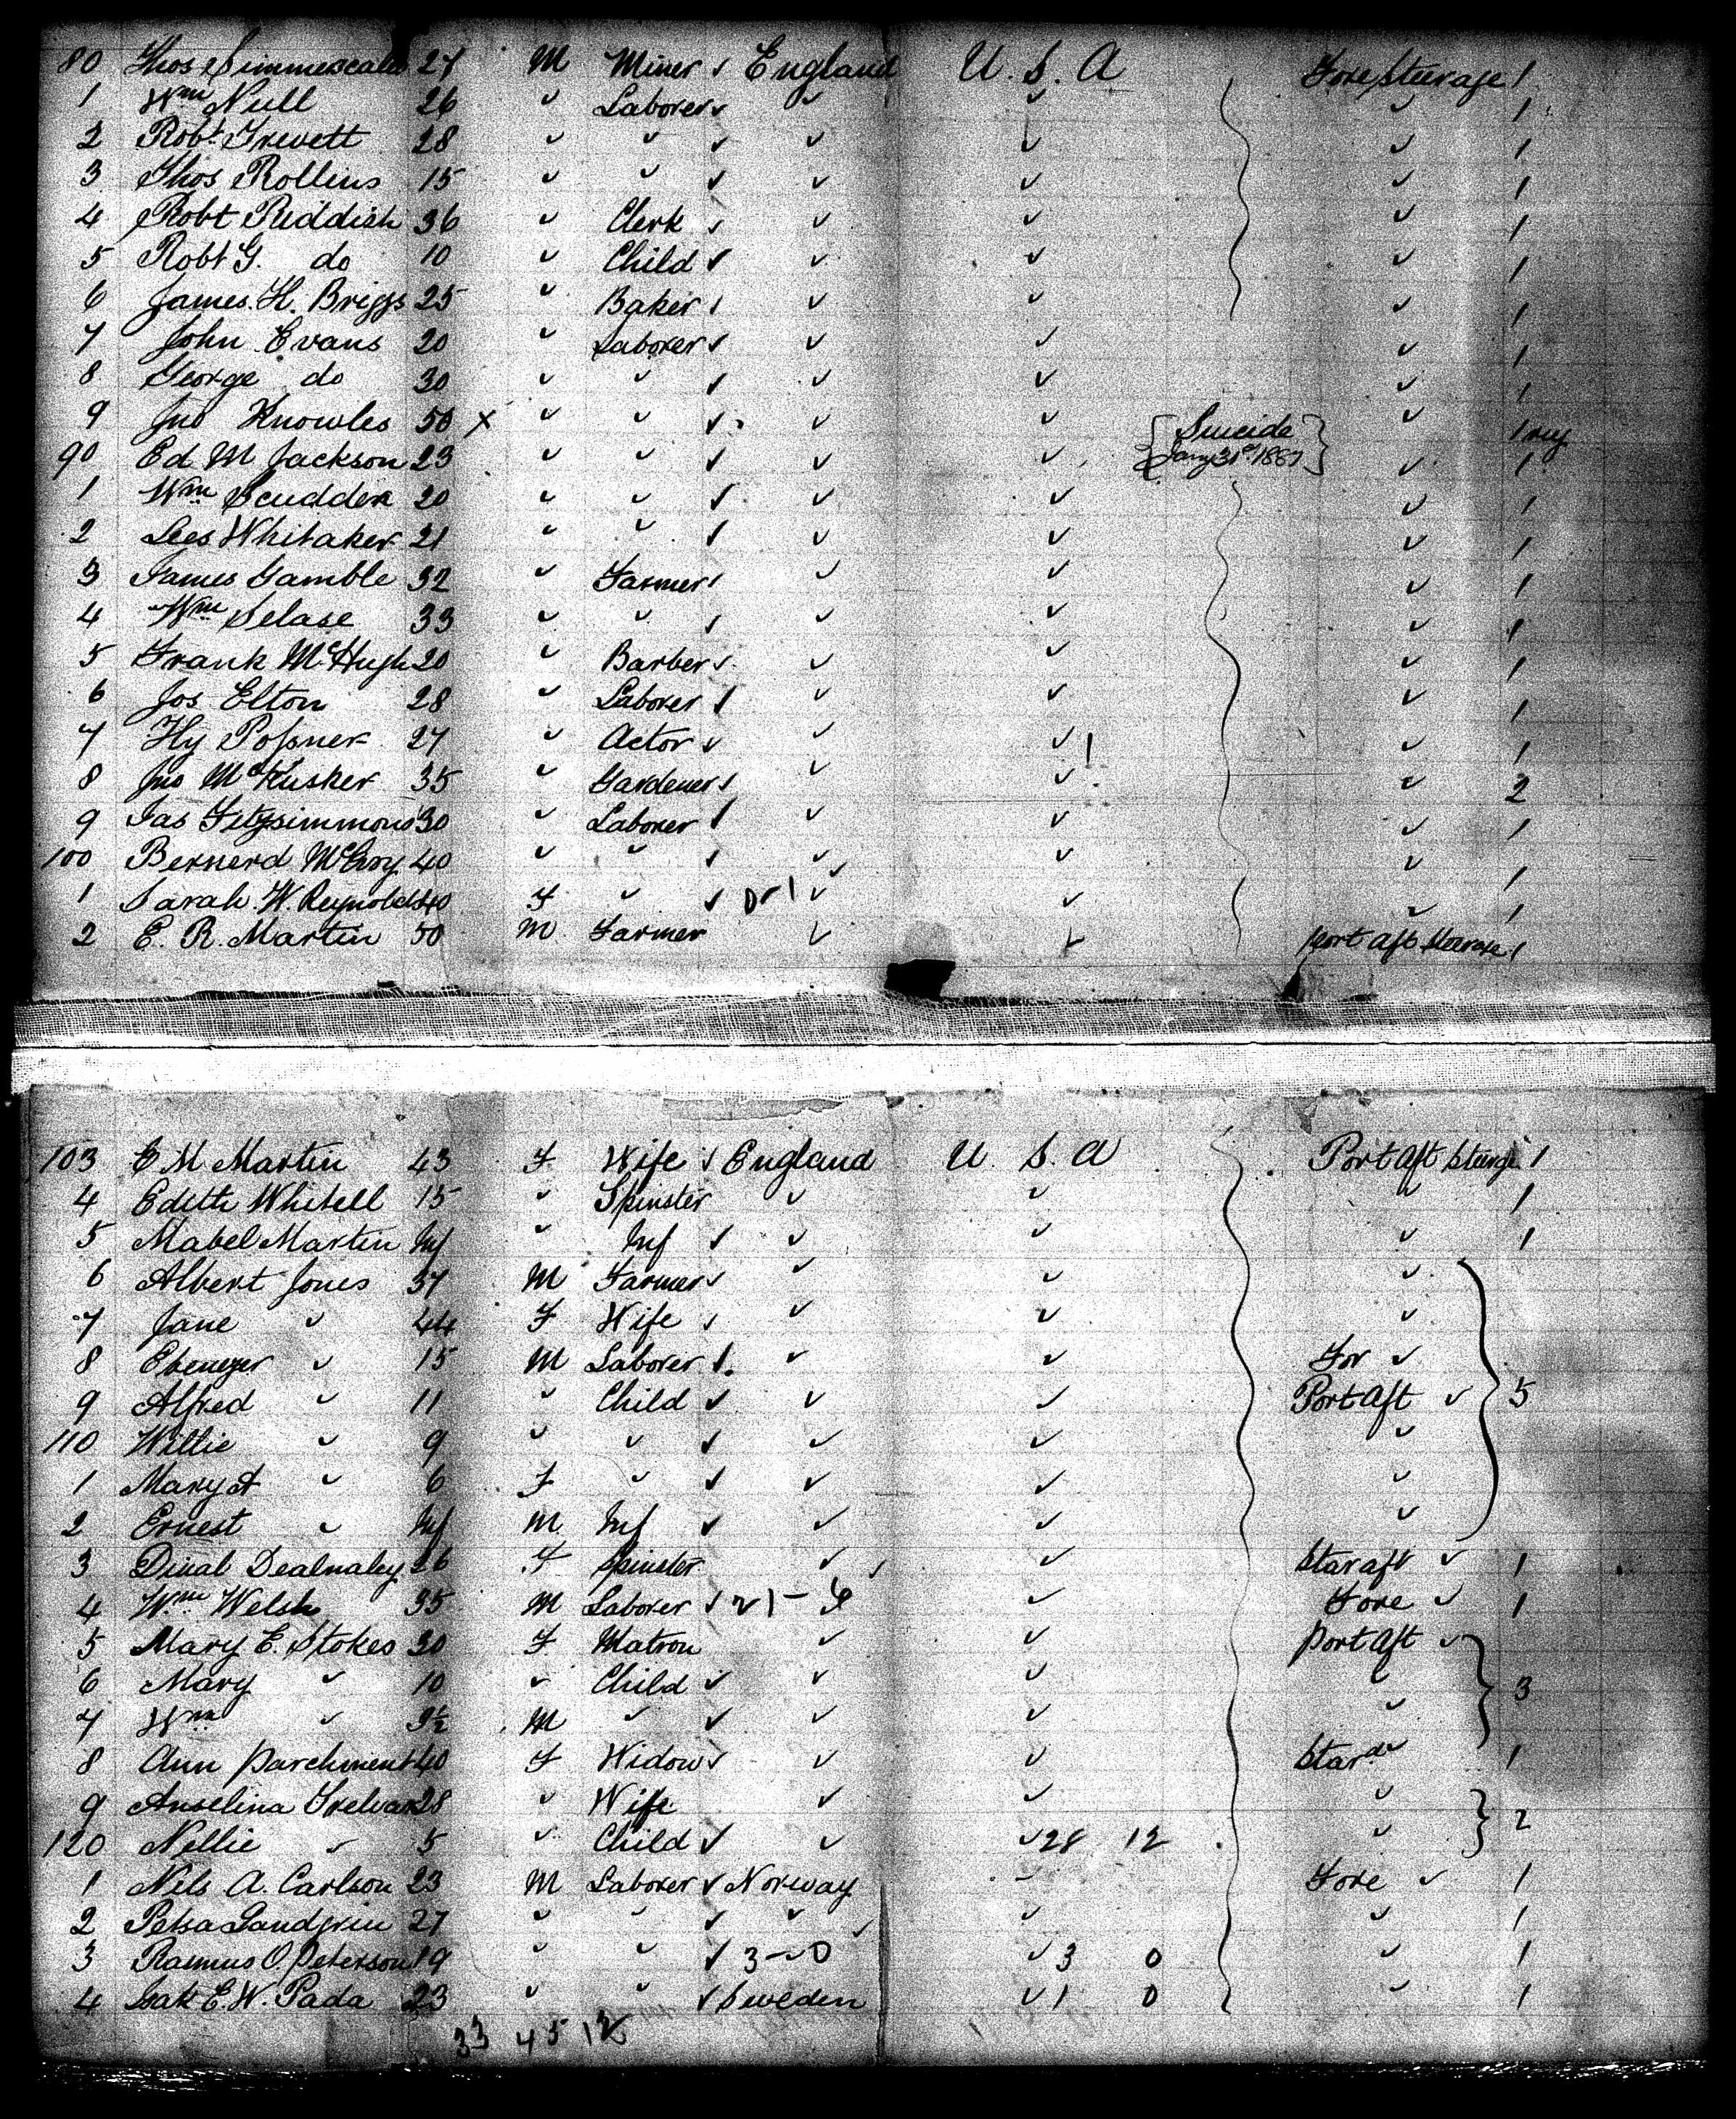 80 Thos Simmescales 27 M Miner ✓ England U. S. A Fore Steerage 1
1 Wm Null 26 " Laborer ✓ " " " 1
2 Robt Trevett 28 " " ✓ " " " 1
3 Thos Rollins 15 " " ✓ " " " 1
4 Robt Riddish 36 " Clerk ✓ " " " 1
5 Robt G. do 10 " Child ✓ " " " 1
6 James. H. Briggs 25 " Baker ✓ " " " 1
7 John Evans 20 " Laborer ✓ " " " 1
8 George do 30 " " ✓ " " " 1
9 Jno Knowles 50 x " " ✓ " " { Suicide " 1
90 Ed M Jackson 23 " " ✓ " " Jany 31st 1887 } " 1
1 Wm Scudder 20 " " ✓ " " " 1
2 Lees Whitaker 21 " " ✓ " " " 1
3 James Gamble 32 " Farmer ✓ " " " 1
4 Wm Selase 33 " " ✓ " " " 1
5 Frank McHugh 20 " Barber ✓ " " " 1
6 Jos Elton 28 " Laborer ✓ " " " 1
7 Hy Posner 27 " Actor ✓ " " 1 " 1
8 Jno McKusker 35 " Gardener ✓ " " " 2
9 Jas Fitzsimmons 30 " Laborer ✓ " " " 1
100 Bernerd 40 " " ✓ " " " 1
1 Sarah. W. Reynolds 40 F " ✓ " " " 1
2 E. R. Martin 50 M Farmer " " Port aft Steerage 1
103 E M Martin 43 F Wife ✓ England U. S. A Port Aft Steerge 1
4 Edith Whitell 15 " Spinster " " " 1
5 Mabel Martin Inf " Inf ✓ " " " 1
6 Albert Jones 37 M Farmer ✓ " " "
7 Jane " 44 F Wife ✓ " " "
8 Ebenezer " 15 M Laborer ✓ " " For "
9 Alfred " 11 " Child ✓ " " Port Aft " } 5
110 Willie " 9 " " ✓ " " "
1 Mary A " 6 F " ✓ " " "
2 Ernest " Inf M Inf ✓ " " "
3 Dinal Dealnaley 26 F Spinster " " Star aft " 1
4 Wm Welsh 35 M Laborer ✓ 21 - 6 " Fore " 1
5 Mary E. Stokes 30 F Matron " " Port Aft "
6 Mary " 10 " Child ✓ " " " } 3
7 Wm " 3½ M " ✓ " " "
8 Ann Parchment 40 F Widow ✓ " " Stard " 1
9 Anselina Trelvar 28 " Wife " " "
120 Nellie " 5 " Child ✓ " " 28 12 " } 2
1 Nils A. Carlson 23 M Laborer ✓ Norway " Fore " 1
2 27 " " ✓ " " " 1
3 Rasmus O. Peterson 19 " " ✓ 3 - 0 " 3 0 " 1
4 E. W. Pada 23 " " ✓ Sweden " 1 0 " 1
33 45 12